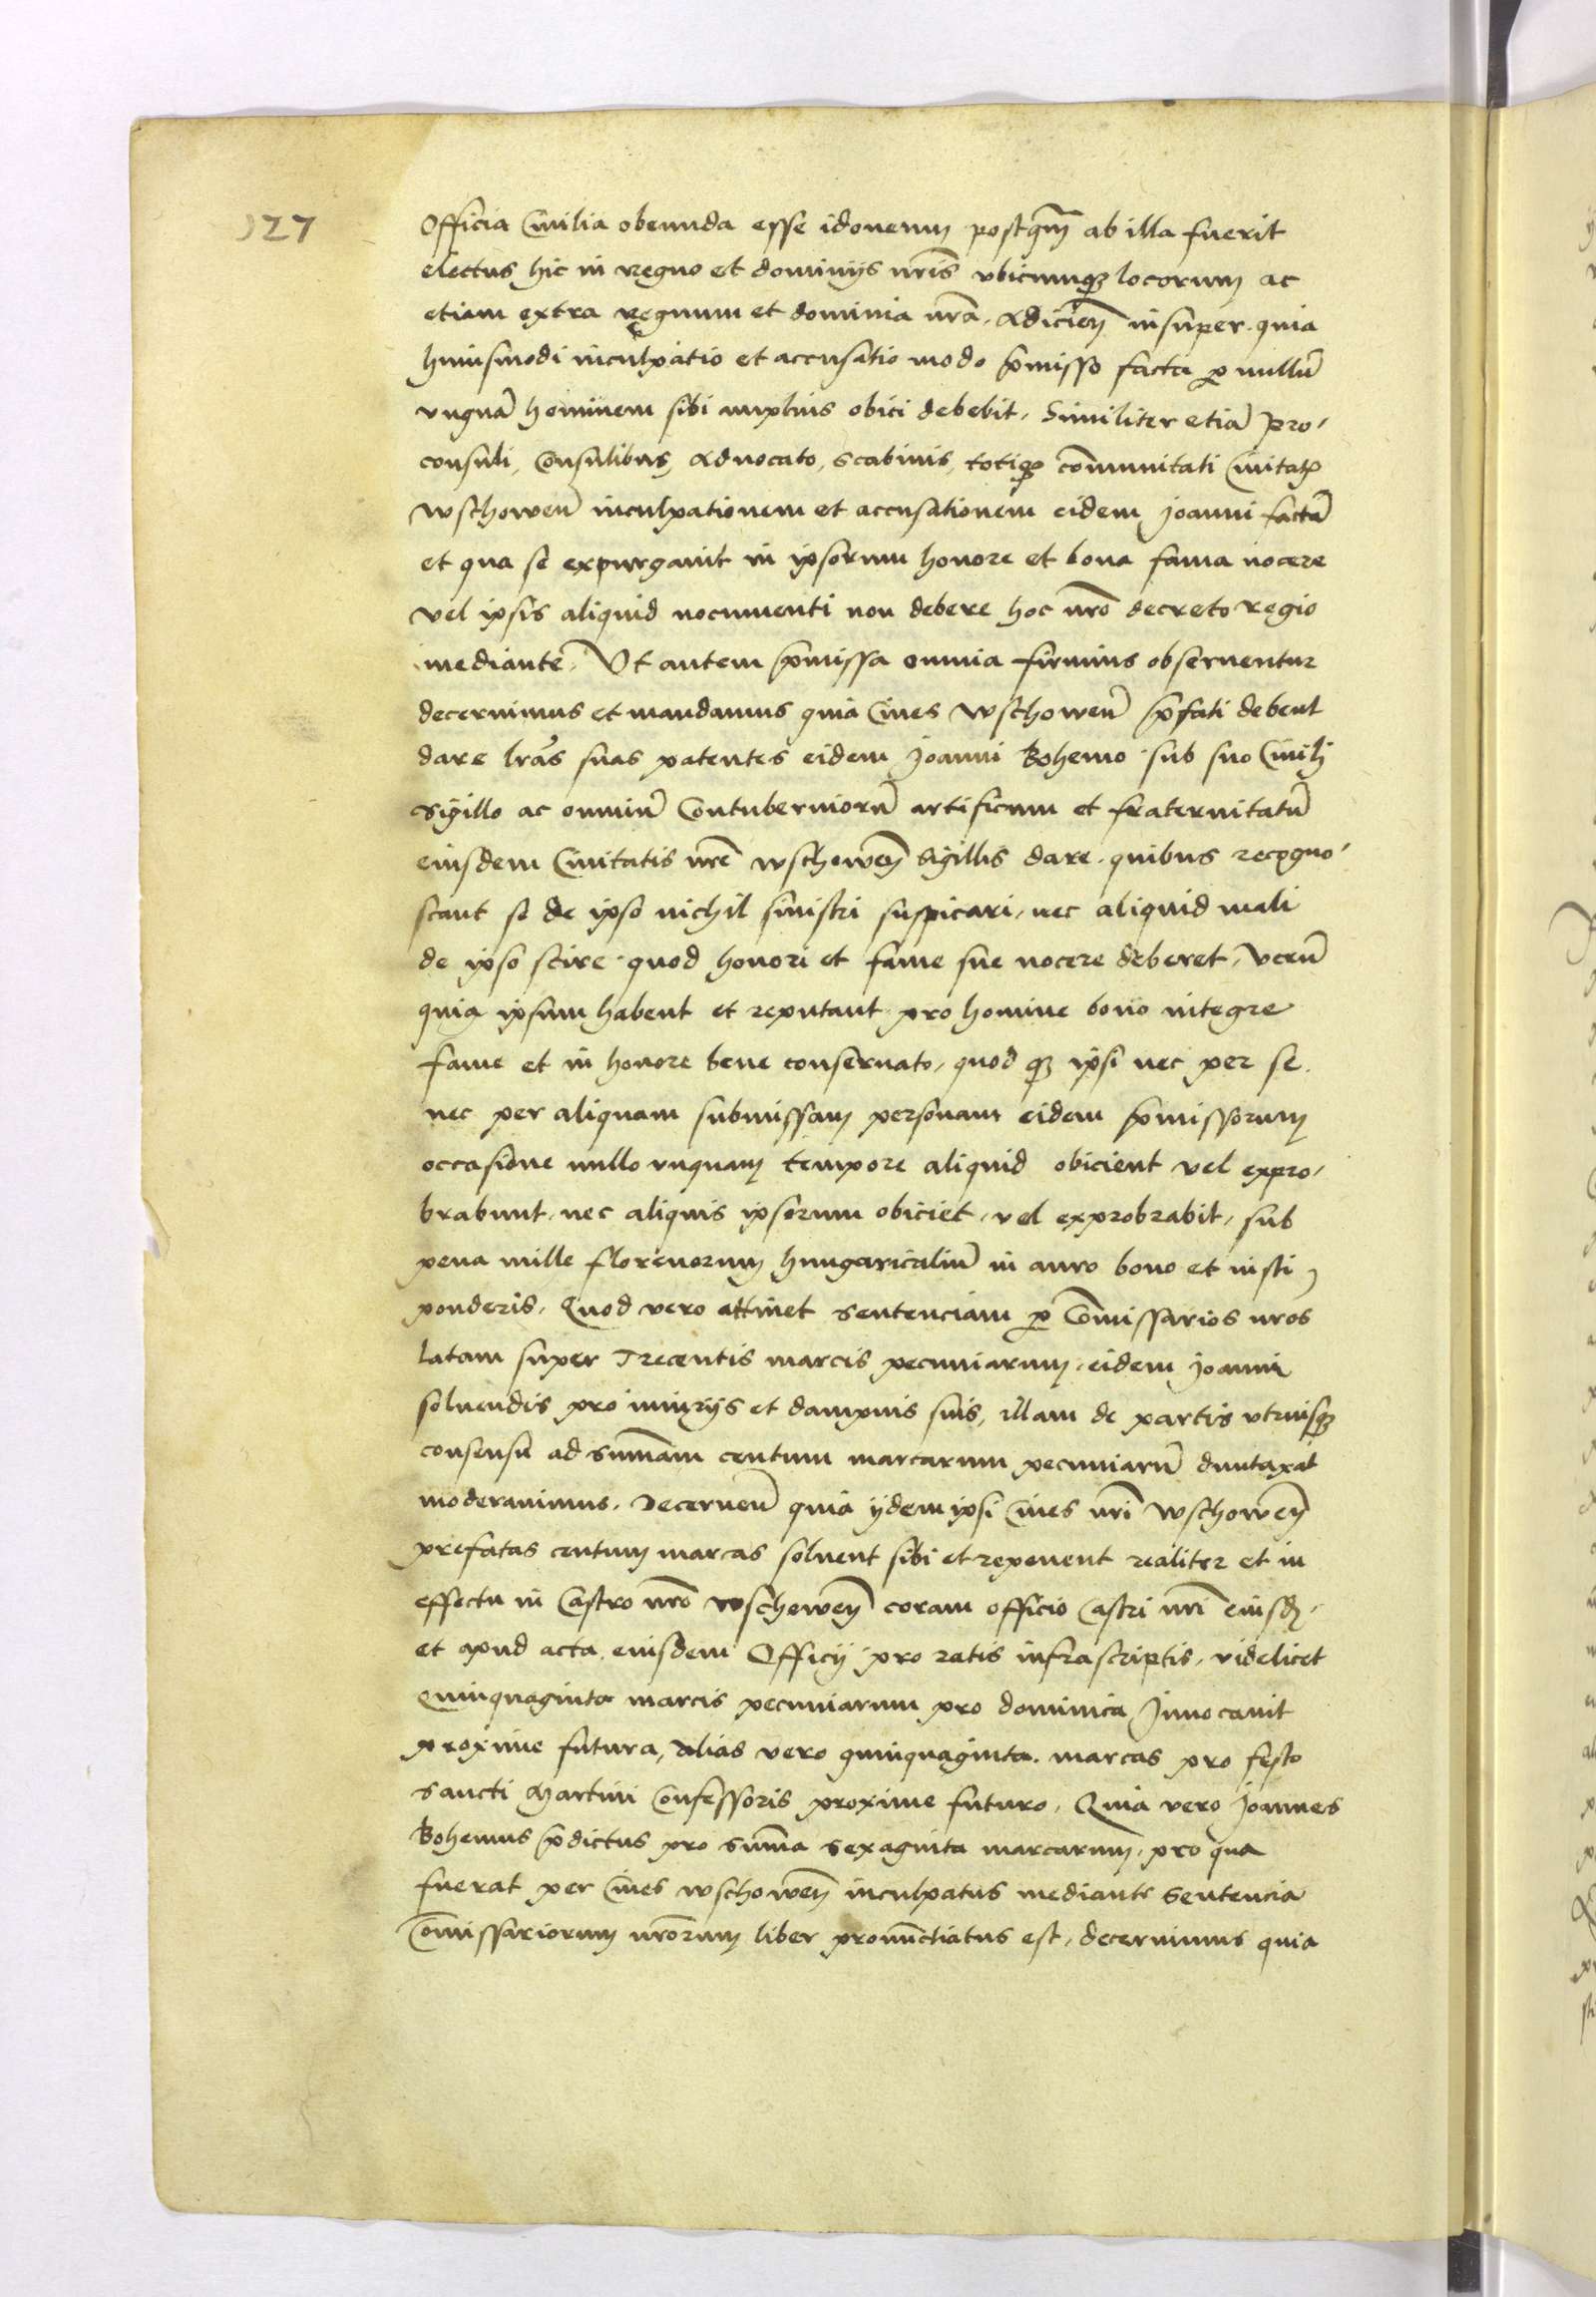 127
Officia Civilia obeunda esse idoneum postqm̃ ab illa fuerit
electus hic in regno et dominijs nr̃is vbicunqꝫ locorum ac
etiam extra regnum et dominia nr̃a. Adicien̄ insuper. quia
huiusmodi inculpatio et accusatio modo p̄misso facta ꝑ nullū
vnquā hominem sibi amplius obici debebit, Similiter etiā Pro,
consuli, Consulibus, Advocato, scabinis, totiqꝫ com̄unitati Civitatꝭ
wschowen̄ inculpationem et accusationem eidem Joanni factā
et qua se expurgauit in ipsorum honore et bona fama nocere
vel ipsis aliquid nocumenti non debere hoc nr̃o decreto regio
mediante. Vt autem p̄missa omnia firmius obseruentur
decernimus et mandamus quia Ciues wschowen̄ p̄fati debent
dare lr̃as suas patentes eidem Joanni Bohemo sub suo Ciuili
sigillo ac omniū Contuberniorū artificum et fraternitatū
eiusdem Ciuitatis nr̃e wschowen̄ sigillis dare. quibus recogno,
scant se de ipso nichil sinistri suspicari, nec aliquid mali
de ipso scire quod honori et fame sue nocere deberet, vcrū
quia ipsum habent et reputant pro homine bono integre
fame et in honore bene conseruato, quod qꝫ ipsi nec per se
nec per aliquam submissam personam eidem p̄missorum
occasione nullo vnquam tempore aliquid obicient vel expro,
brabunt, nec aliquis ipsorum obiciet, vel exprobrabit, sub
pena mille florenorum hungaricaliū in auro bono et iusti
ponderis. Quod vero attinet sentenciam ꝑ Com̄issarios nr̃os
latam super Trecentis marcis pecuniarum eidem Joanni
soluendis pro iniurijs et dampnis suis, illam de partis vtriusqꝫ
consensu ad sum̄am centum marcarum pecuniarū duntaxat
moderauimus. Decernen̄ quia ijdem ipsi Ciues nr̃i wschowen̄
prefatas centum marcas soluent sibi et reponent realiter et in
effectu in Castro nr̃o wschowen̄ coram officio Castri nr̃i eiusdꝫ,
et apud acta eiusdem Officij pro ratis infrascriptis, videlicet
Quinquaginta marcis pecuniarum pro dominica Inuocauit
proxime futura, Alias vero quinquaginta marcas pro festo
Sancti Martini Confessoris proxime futuro. Quia vero Joannes
Bohemus p̄dictus pro sum̄a sexaginta marcarum, pro qua
fuerat per Ciues wschowen̄ inculpatus mediante Sentencia
Com̄issariorum nr̃orum liber pronunctiatus est, decernimus quia